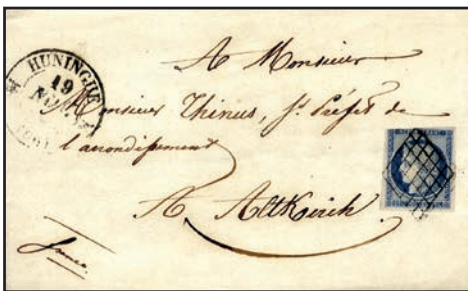 HUNINGUE
19
A Monsieur
Monsieur Thinus, Ss Préfet de
l'arrondissement
A Altkirch
franco